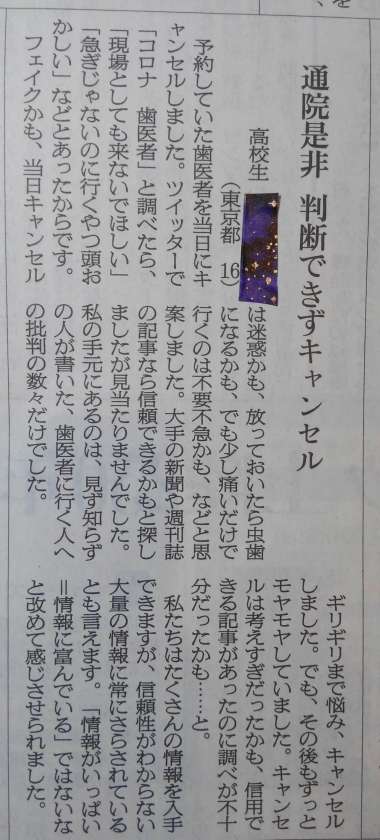 通院是非 判断できずキャンセル
高校生
(東京都 16)
予約していた歯医者を当日にキ
ャンセルしました。ツイッターで
「コロナ 歯医者」と調べたら、
「現場としても来ないでほしい」
「急ぎじゃないのに行くやつ頭お
かしい」などとあったからです。
フェイクかも、当日キャンセル
は迷惑かも、放っておいたら虫歯
になるかも、でも少し痛いだけで
行くのは不要不急かも、などと思
案しました。大手の新聞や週刊誌
の記事なら信頼できるかもと探し
ましたが見当たりませんでした。
私の手元にあるのは、見ず知らず
の人が書いた、歯医者に行く人へ
の批判の数々だけでした。
ギリギリまで悩み、キャンセル
しました。でも、その後もずっと
モヤモヤしていました。キャンセ
ルは考えすぎだったかも、信用で
きる記事があったのに調べが不十
分だったかも……と。
私たちはたくさんの情報を入手
できますが、信頼性がわからない
大量の情報に常にさらされている
とも言えます。「情報がいっぱい
=情報に富んでいる」ではないな
と改めて感じさせられました。